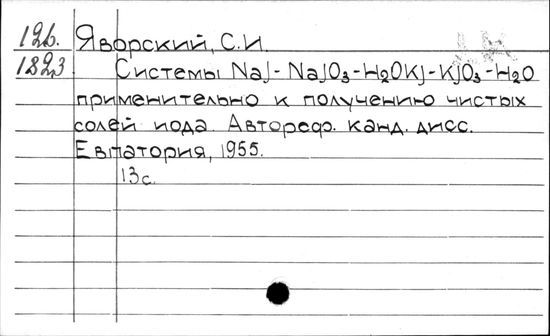 126. Яворский, С.И.
1823 Системы NaJ - NaJO3-H2OKJ-KJO3-H2O
применительно к получению чистых
солей иода. Автореф. канд. дисс.
Евпатория, 1955.
13с.